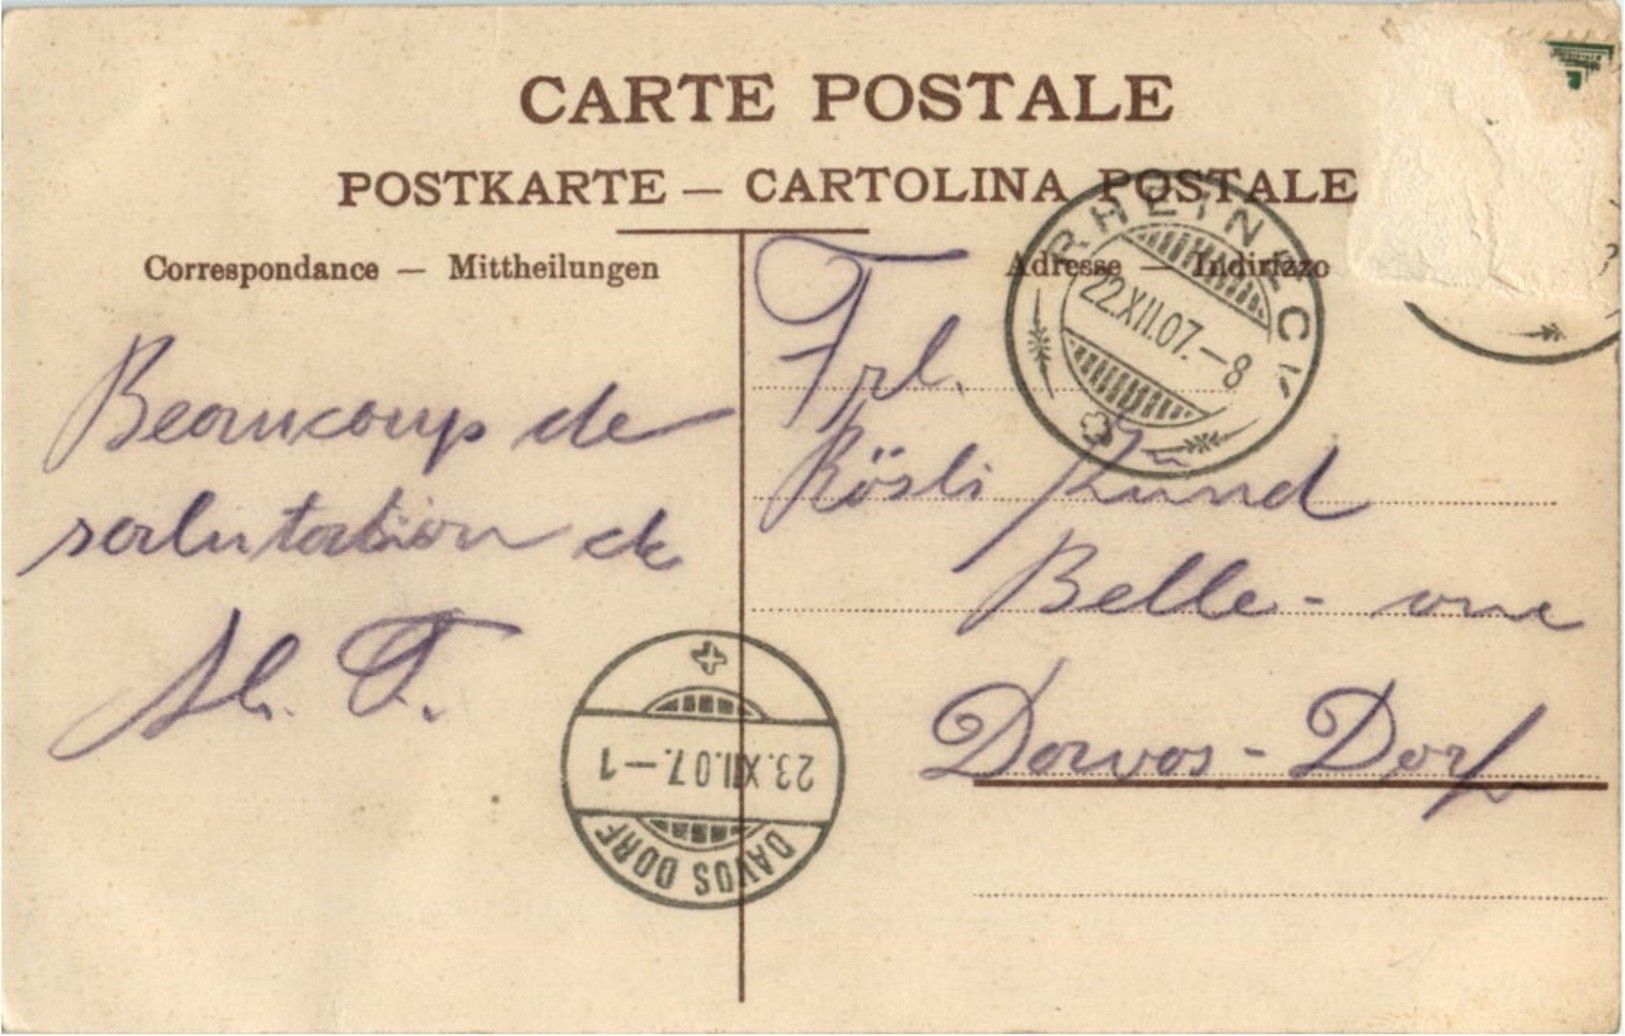 CARTE POSTALE
POSTKARTE — CARTOLINA POSTALE
Correspondance — Mittheilungen
Adresse — Indirizzo
Beaucoup de
salutation de
Frl.
Rösli Zünd
Belle-vue
Davos-Dorf
RHEINECK
22.XII.07.—8
23.XII.07.—1
DAVOS DORF